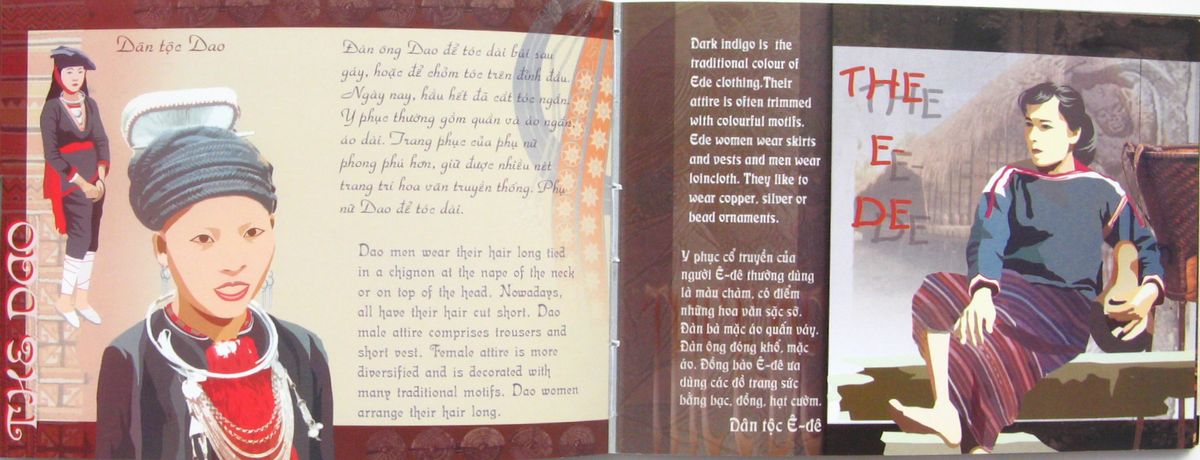 THE DAO
Dân tộc Dao
Đàn ông Dao để tóc dài búi sau
gáy, hoặc để chỏm tóc trên đỉnh đầu.
Ngày nay, hầu hết đã cắt tóc ngắn.
Y phục thường gồm quần và áo ngắn,
áo dài. Trang phục của phụ nữ
phong phú hơn, giữ được nhiều nét
trang trí hoa văn truyền thống. Phụ
nữ Dao để tóc dài.
Dao men wear their hair long tied
in a chignon at the nape of the neck
or on top of the head. Nowadays,
all have their hair cut short. Dao
male attire comprises trousers and
short vest. Female attire is more
diversified and is decorated with
many traditional motifs. Dao women
arrange their hair long.
Dark indigo is the
traditional colour of
Ede clothing.Their
attire is often trimmed
with colourful motifs.
Ede women wear skirts
and vests and men wear
loincloth. They like to
wear copper, silver or
bead ornaments.
Y phục cổ truyền của
người Ê-đê thường dùng
là màu chàm, có điểm
những hoa văn sặc sỡ.
Đàn bà mặc áo quấn váy.
Đàn ông đóng khố, mặc
áo. Đồng bào Ê-đê ưa
dùng các đồ trang sức
bằng bạc, đồng, hạt cườm.
Dân tộc Ê-đê
THE
E-
DE